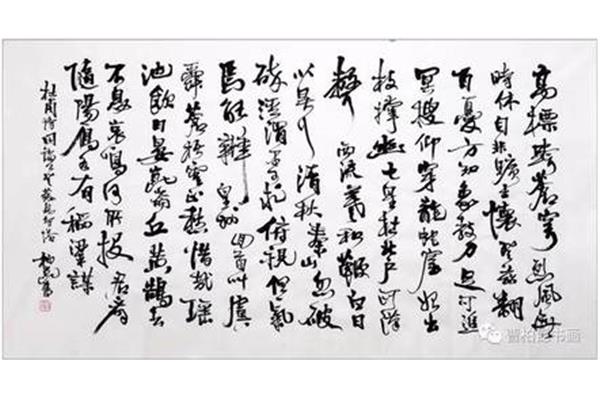 高標跨蒼穹烈風無
時休自非曠士懷登茲翻
百憂方知象教力足可追
冥搜仰穿龍蛇窟始出
枝撐幽七星在北戶河漢
聲西流羲和鞭白日
少昊行清秋秦山忽破
碎涇渭不可求俯視但一氣
焉能辨皇州回首叫虞
舜蒼梧雲正愁惜哉瑤
池飲日晏崑崙丘黃鵠去
不息哀鳴何所投君看
隨陽雁各有稻粱謀
杜甫詩同諸公登慈恩寺塔